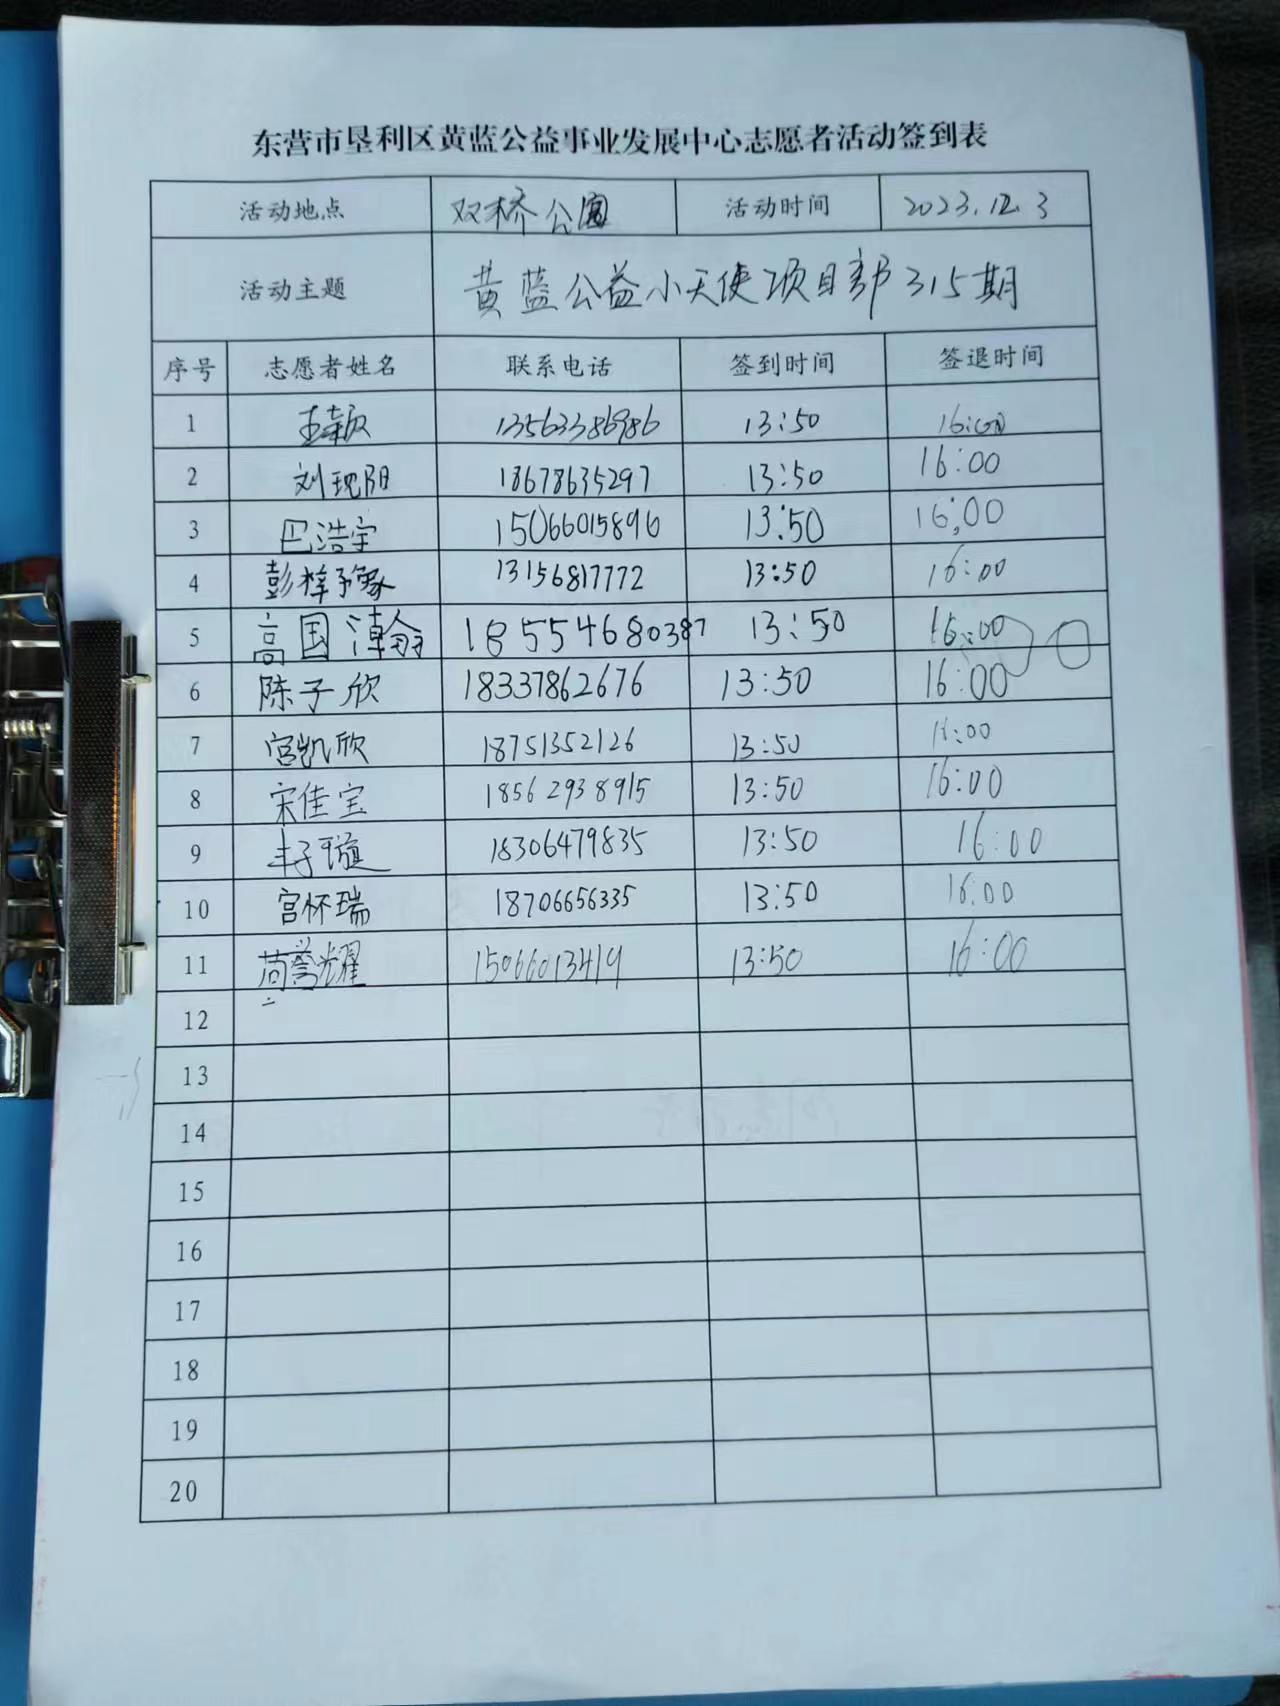 东营市垦利区黄蓝公益事业发展中心志愿者活动签到表
活动地点 双桥公园 活动时间 2023.12.3
活动主题 黄蓝公益小天使项目部315期
序号 志愿者姓名 联系电话 签到时间 签退时间
1 王颖 13563386986 13:50 16:00
2 刘现阳 18678635297 13:50 16:00
3 巴浩宇 15066015896 13:50 16:00
4 彭梓豫 13156817772 13:50 16:00
5 高国瀚 18554680387 13:50 16:00
6 陈子欣 18337862676 13:50 16:00
7 宫凯欣 18751352126 13:50 16:00
8 宋佳宝 18562938915 13:50 16:00
9 丰子璇 18306479835 13:50 16:00
10 宫怀瑞 18706656335 13:50 16:00
11 苟誉耀 15066013419 13:50 16:00
12
13
14
15
16
17
18
19
20